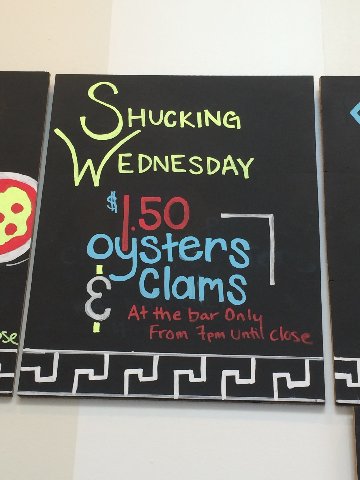 Shucking
Wednesday
$1.50
oysters
& Clams
At the bar Only
From 7pm Until Close
se
se